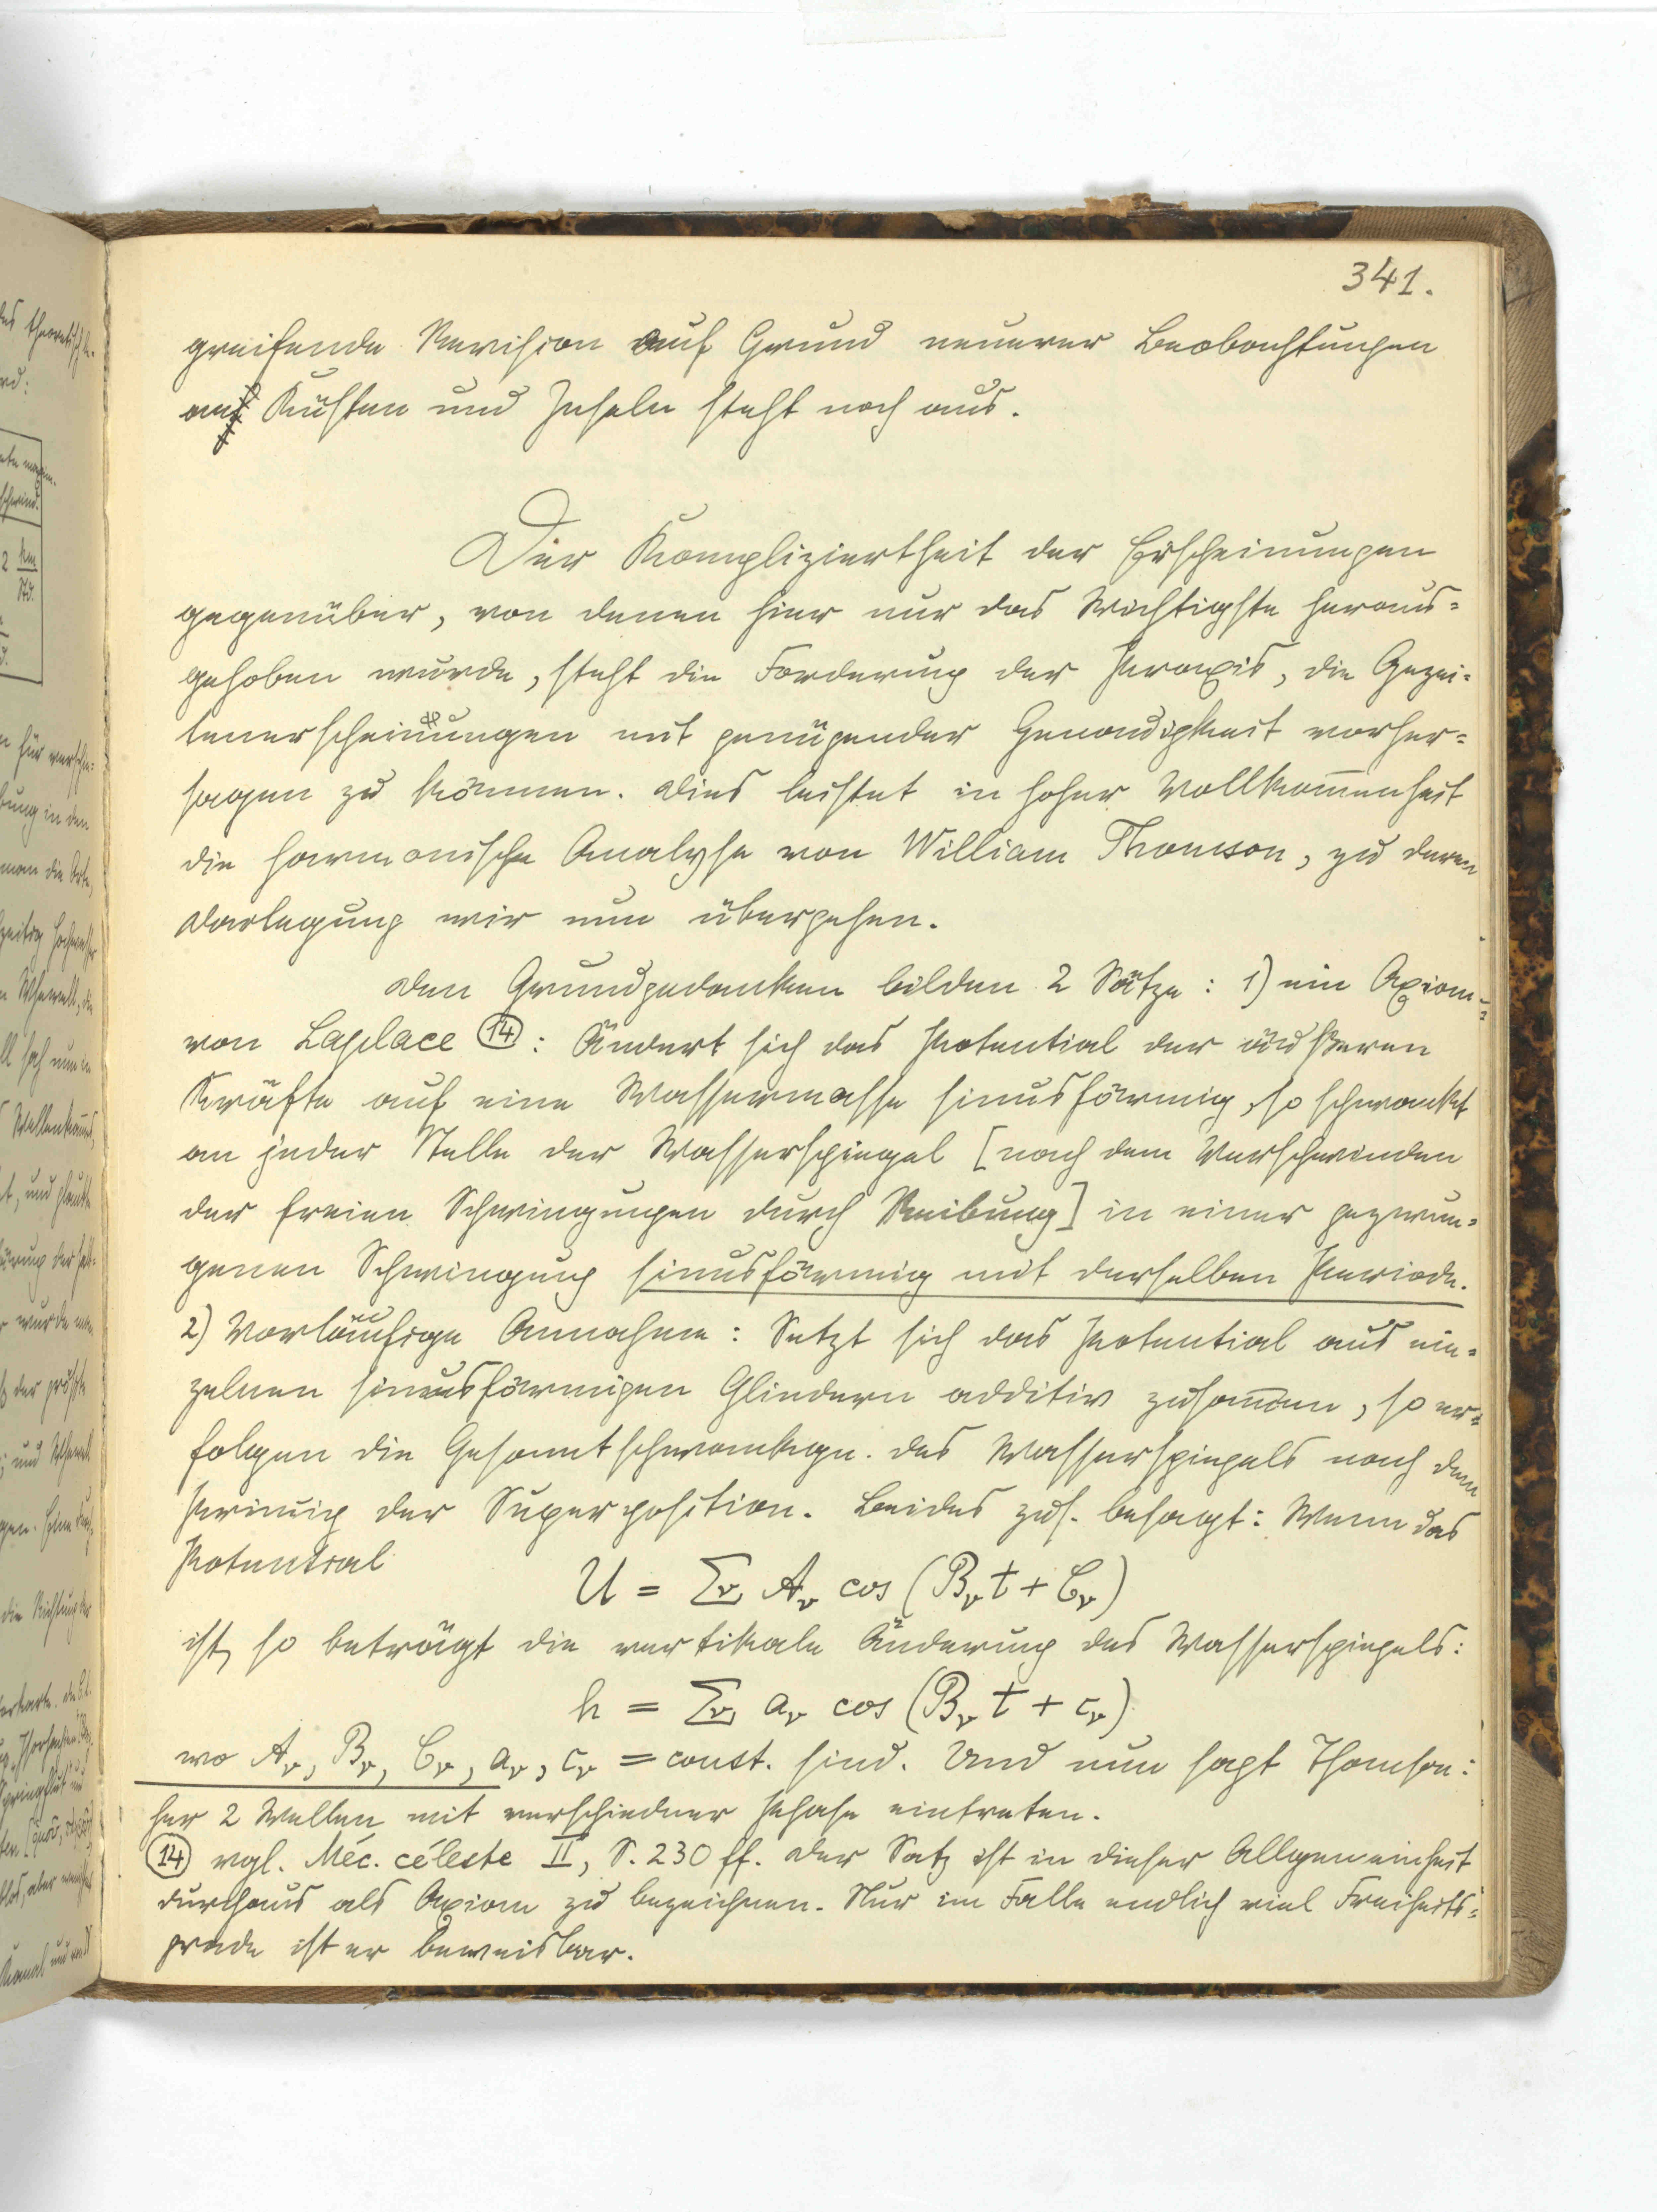 341.
greifende Revision auf Grund neuerer Beobachtungen
an Küsten und Inseln steht noch aus.
Der Kompliziertheit der Erscheinungen
gegenüber, von denen hier nur das Wichtigste heraus=
gehoben wurde, steht die Forderung der Praxis, die Gezei=
tenerscheinungen mit genügender Genauigkeit vorher=
sagen zu können. Dies leistet in hoher Vollkom̅enheit
die harmonische Analyse von William Thomson, zu deren
Darlegung wir nun übergehen.
Den Grundgedanken bilden 2 Sätze: 1) ein Axiom
von Laplace (14): Ändert sich das Potential der äußeren
Kräfte auf eine Wassermasse sinusförmig, so schwankt
an jeder Stelle der Wasserspiegel [nach dem Verschwinden
der freien Schwingungen durch Reibung] in einer gezwun=
genen Schwingung sinusförmig mit derselben Periode.
2) Vorläufige Annahme: Setzt sich das Potential aus ein=
zelnen sinusförmigen Gliedern additiv zusam̅en, so er=
folgen die Gesamtschwankgn. des Wasserspiegels nach dem
Prinzip der Superposition. Beides zus. besagt: Wenn das
Potential
U = Σν Aν cos (Bν t + Cν)
ist, so beträgt die vertikale Änderung des Wasserspiegels:
h = Σν aν cos (Bν t + cν)
wo Aν, Bν, Cν, aν, cν = const. sind. Und nun sagt Thomson:
her 2 Wellen mit verschiedner Phase eintreten.
(14) vgl. Méc. céleste II, S. 230 ff. Der Satz ist in dieser Allgemeinheit
durchaus als Axiom zu bezeichnen. Nur im Falle endlich viel Freiheits=
grade ist er beweisbar.